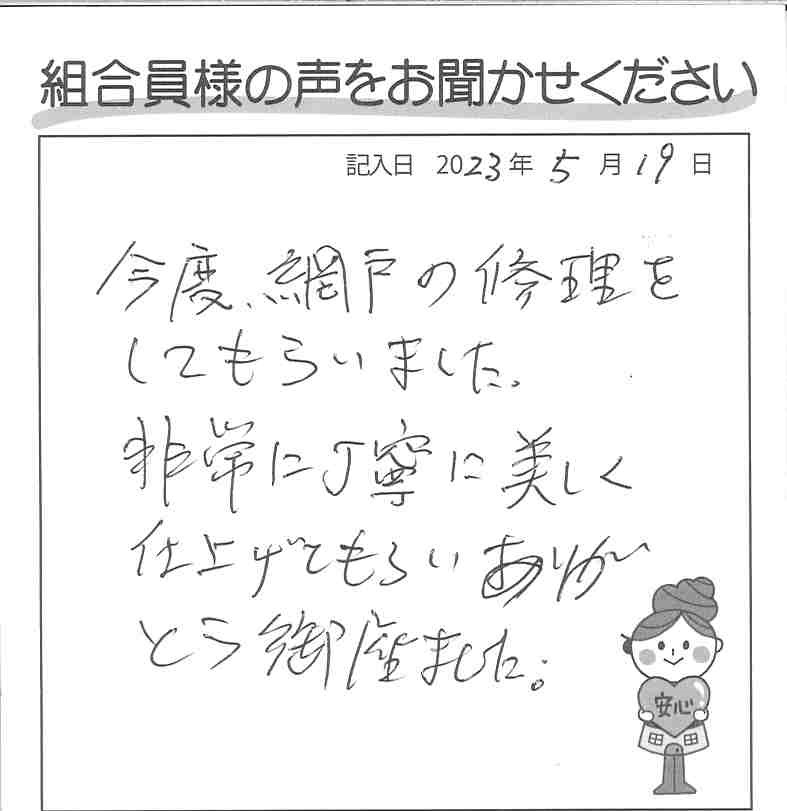 組合員様の声をお聞かせください
記入日 2023年 5月19日
今度、網戸の修理を
してもらいました。
非常に丁寧に美しく
仕上げてもらいありが
とう御座ました。
安心